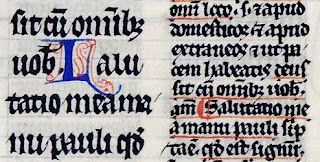 sit cū om̄ibꝫ
uob̄ I alu
tatio mea ma
nu pauli qd̄
om̄i loco. s; & apud
domesticos & apud
extraneos & ut pa
cem habeatis
sit cū om̄ibꝫ uob̄.
am̄ Salutatio me
a manu pauli sc̄p
tae. qd̄ est signū.